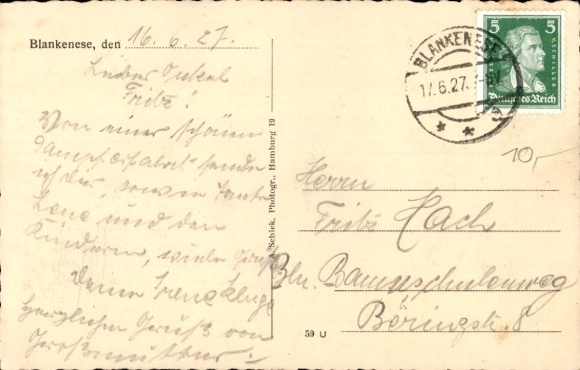 Blankenese, den 16.6.27.
Lieber Onkel
Fritz!
Von einer schönen
Dampferfahrt sende
ich dir, sowie Tante
Lene und den
Kindern, viele Grüße
Deine
Herzlichen Gruß von
Großmutter.
Schiek. Photogr., Hamburg 19
59 U
BLANKENESE
17.6.27.
F.v.SCHILLER
5 5
Deutsches Reich
10,-
Herrn
Fritz Hach
Bln. Baumschulenweg
Böringstr. 8